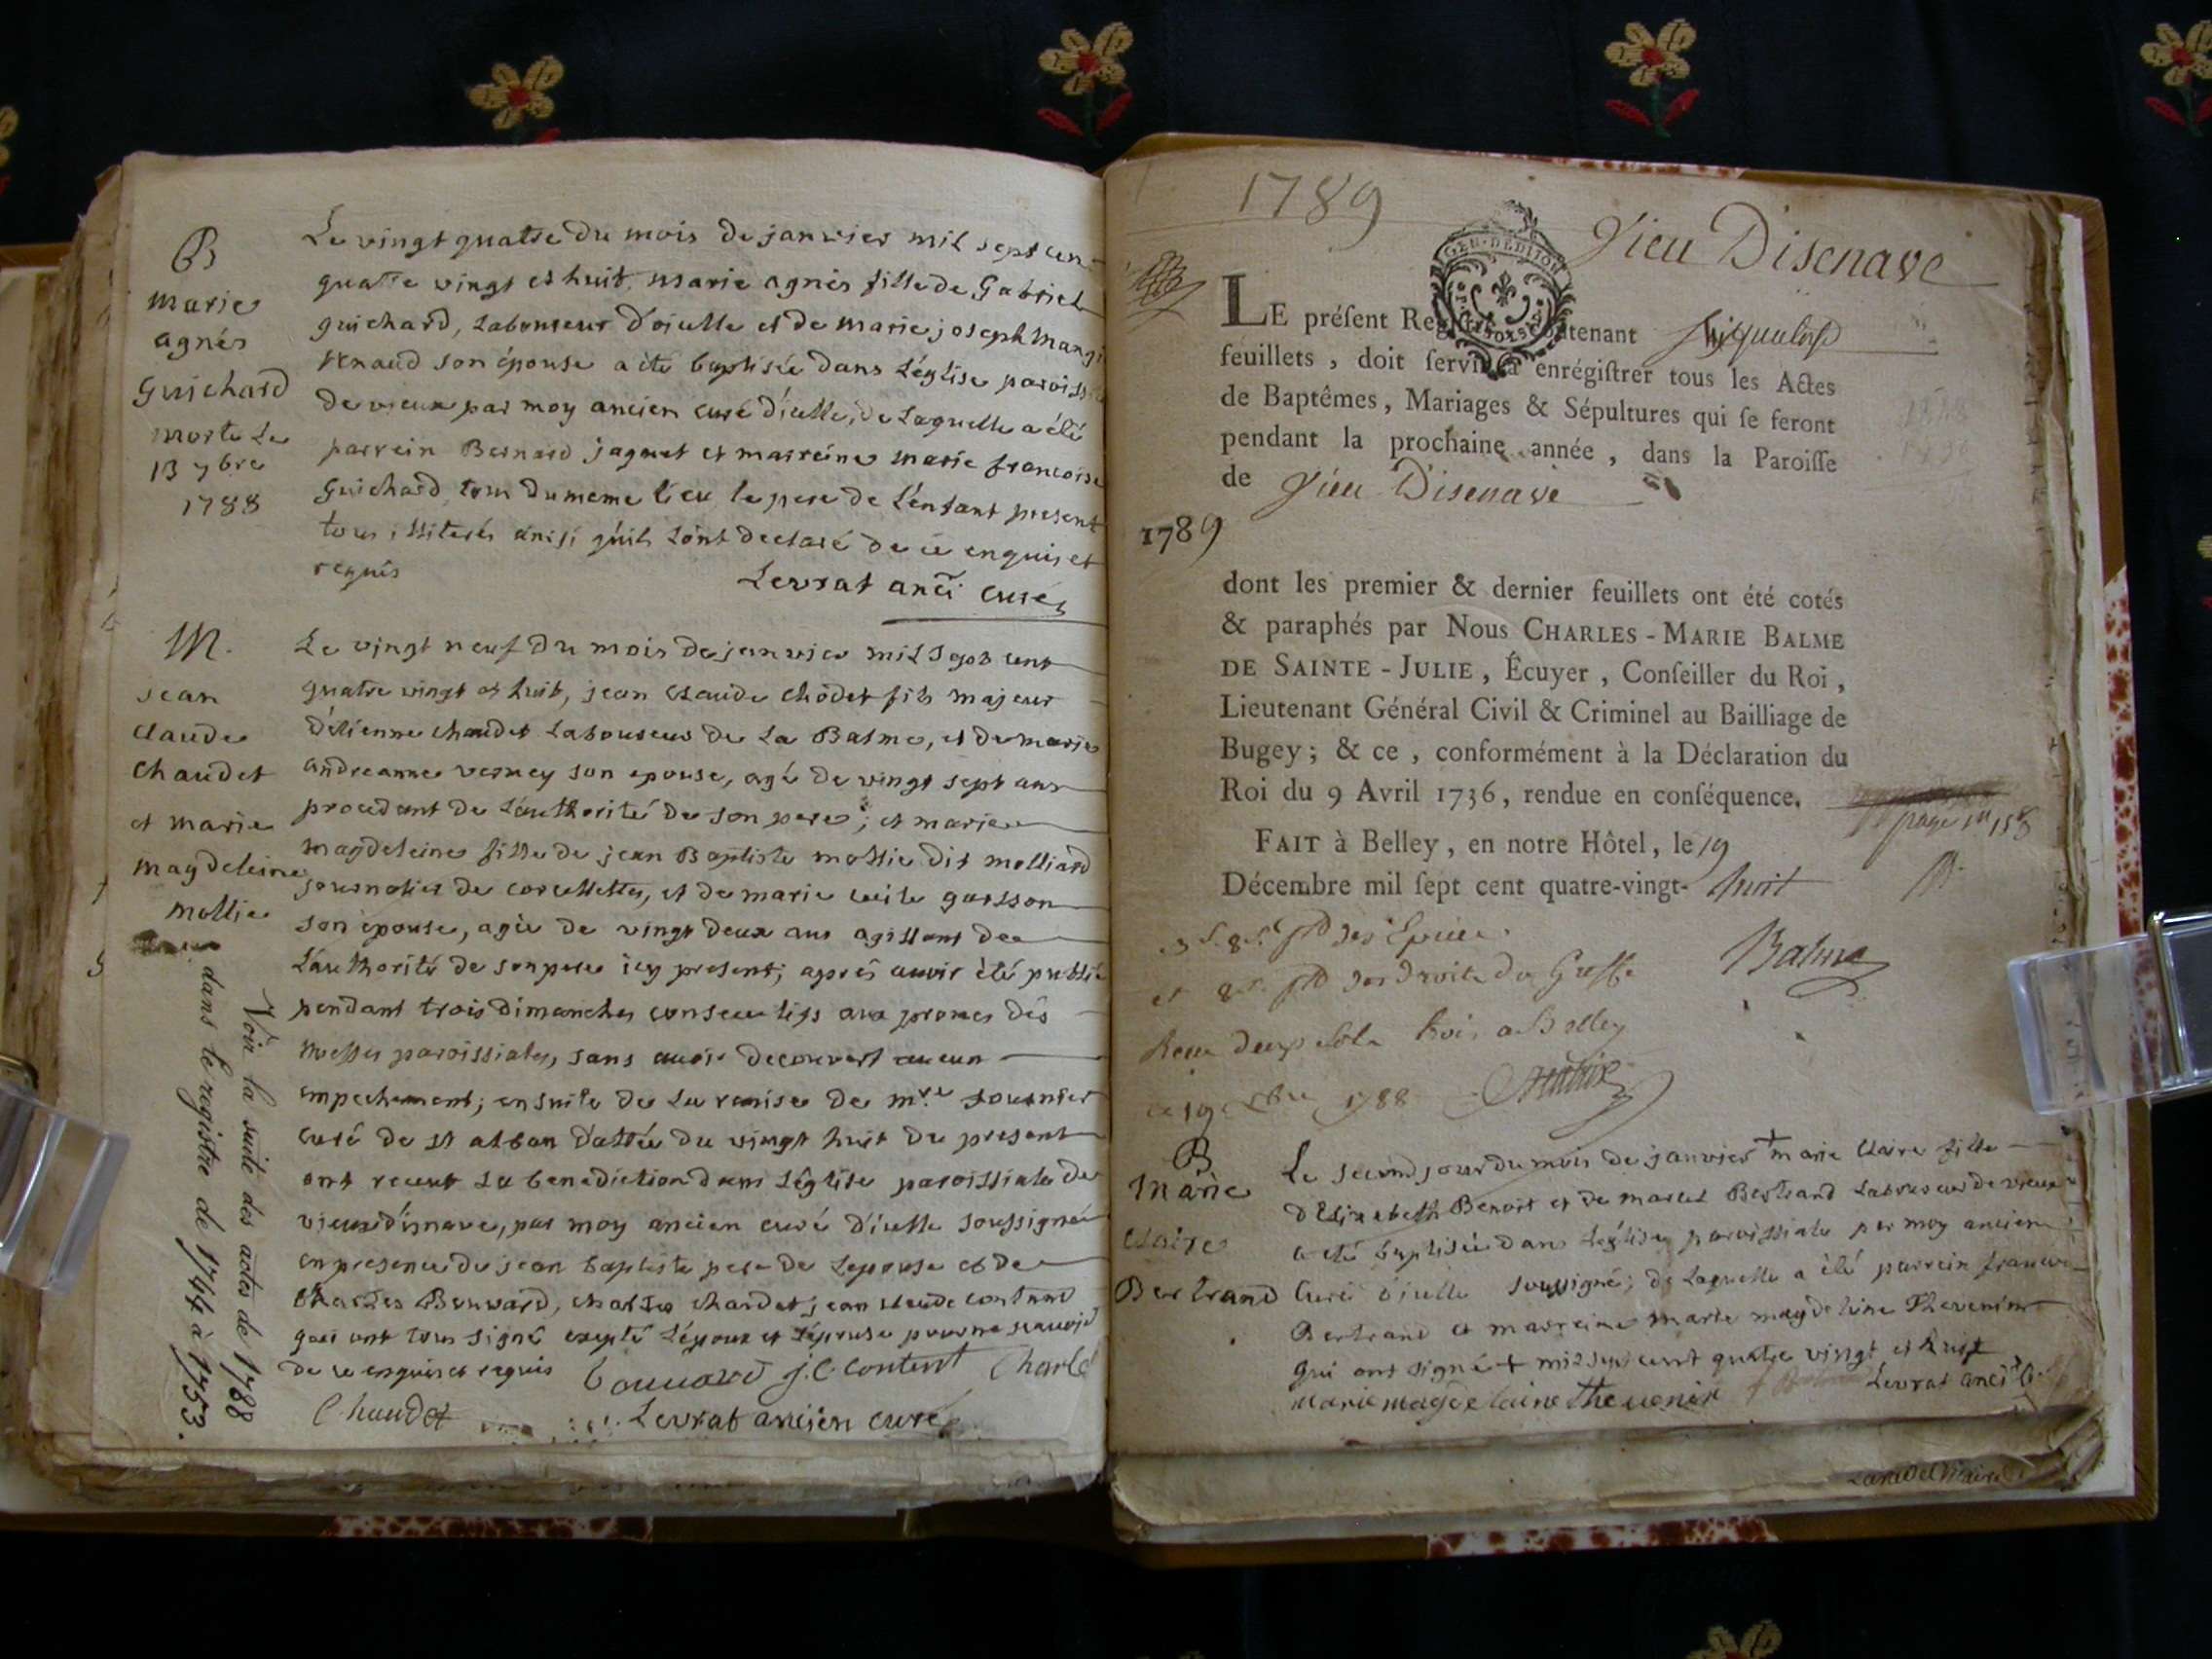 B
marie
agnés
Guichard
morte Le
13 7bre
1788
Le vingt quatre du mois de janvier mil sept cen
quatre vingt et huit, marie agnés fille de Gabriel
guichard, Laboureur d'icelle et de marie joseph mangi
renaud son épouse a été baptisée dans L'église paroissi
de vieux par moy ancien curé d'icelle, de Laquelle a été
parrein Bernard jaquet et marreine marie francoise
Guichard tous du meme lieu le pere de L'enfant present
tous illiterés ainsi qu'ils L'ont declaré de ce enquis et
requis
Levrat anc̄i curé
M.
jean
claude
chaudet
et marie
magdeleine
mollie
Le vingt neuf du mois de janvier mil sept cent
quatre vingt et huit, jean claude chodet fils majeur
d'étienne chaudet Laboureur de La Balme, et de marie
andreanne verney son epouse, agé de vingt sept ans
procedant de L'authorité de son pere; et marie
magdeleine fille de jean Baptiste mollie dit molliard
journalier de corcellettes, et de marie cecile
son épouse, agée de vingt deux ans agissant de
L'authorité de son pere icy present; aprés avoir été publié
pendant trois dimanches consecutifs aux prones des
messes paroissiales, sans avoir decouvert aucun
empechement; ensuite de La remise de mre. fournier
curé de st alban dattée du vingt huit du present
ont receut La benediction dans L'église paroissiale de
vieux d'isnave, par moy ancien curé d'icelle soussigné
en presence de jean baptiste pere de L'epouse et de
charles Bonnard, charles chardet jean claude content
qui ont tous signé excepté L'époux et L'épouse pour ne scavoir
de ce enquis et requis Bonnard j.C. content Charle
Chaudet Levrat ancien curé
Voir la suite des actes de 1788
dans le registre de 1744 à 1753.
1789
Vieu Disenave
GEN. DEDITION
LE préſent Regiſtre contenant
feuillets, doit ſervir à enrégiſtrer tous les Actes
de Baptêmes, Mariages & Sépultures qui ſe feront
pendant la prochaine année, dans la Paroiſſe
de Vieu Disenave
1789
dont les premier & dernier feuillets ont été cotés
& paraphés par Nous CHARLES-MARIE BALME
DE SAINTE-JULIE, Écuyer, Conſeiller du Roi,
Lieutenant Général Civil & Criminel au Bailliage de
Bugey; & ce, conformément à la Déclaration du
Roi du 9 Avril 1736, rendue en conſéquence.
FAIT à Belley, en notre Hôtel, le 19
Décembre mil ſept cent quatre-vingt- huit
page
Balme
et des droits du Greffe
Reçu deux sols trois a Belley
ce 19 xbre 1788
B
Marie
claire
Bertrand
Le second jour du mois de janvier + marie claire fille
d'Elizabeth Benoit et de marcel Bertrand Laboureur de vieux
a été baptisée dans L'église paroissiale par moy ancien
curé d'icelle soussigné; de Laquelle a été parrein francois
Bertrand et marreine marie magdeleine Thevenin
qui ont signé + mil sept cent quatre vingt et huit
marie magdelaine thevenin Levrat anci